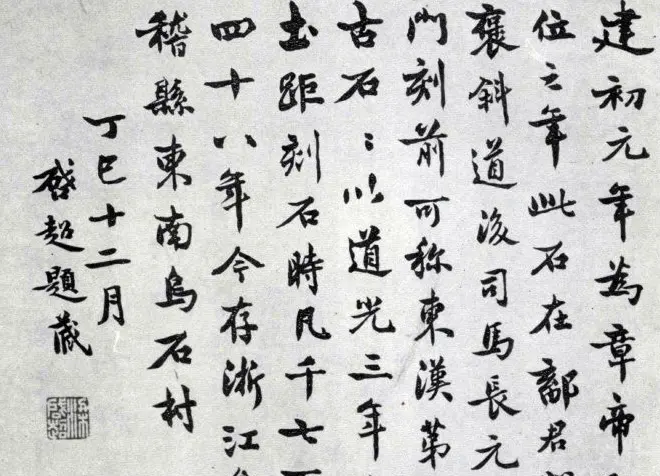 建初元年為章帝
位之年此石在鄐君
褒斜道後司馬長元
門刻前可称東漢第
古石〻以道光三年
出距刻石時凡千七百
四十八年今存浙江
稽縣東南烏石村
丁巳十二月
啓超題藏